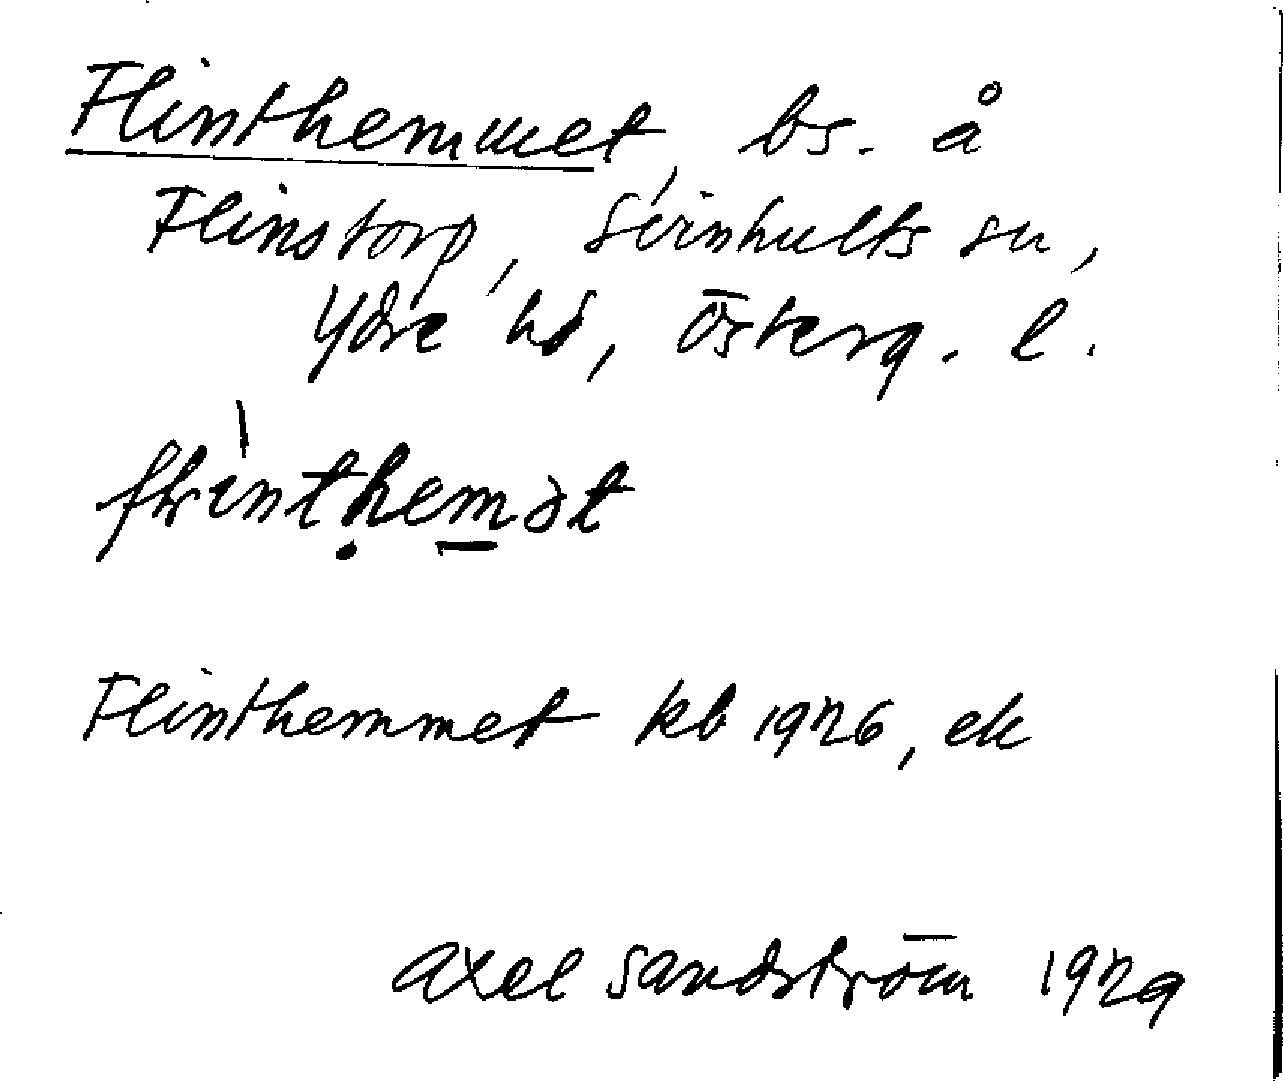 Flinthemmet, bs. å
Flinstorp, Svinhults sn,
Ydre hd, Österg. l.
Flinthemmet kb 1926, ek
Axel Sandström 1929